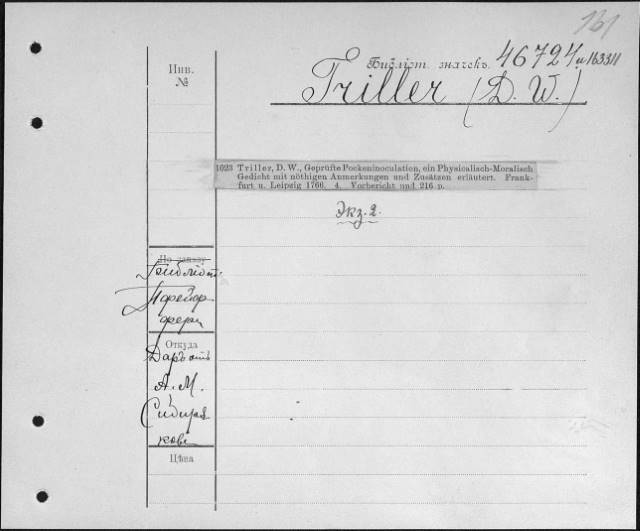 161
Библіот. значекъ 46724 и 1633/1
Инв.
№
Triller (D. W.)
1023 Triller, D. W., Geprüfte Pockeninoculation, ein Physicalisch-Moralisch
Gedicht mit nöthigen Anmerkungen und Zusätzen erläutert. Frank-
furt u. Leipzig 1766. 4. Vorbericht und 216 p.
Экз. 2.
По заказу
Библіот.
Пфейф
фера
Откуда
Даръ отъ
А. М.
Сибиря
кова
Цѣна